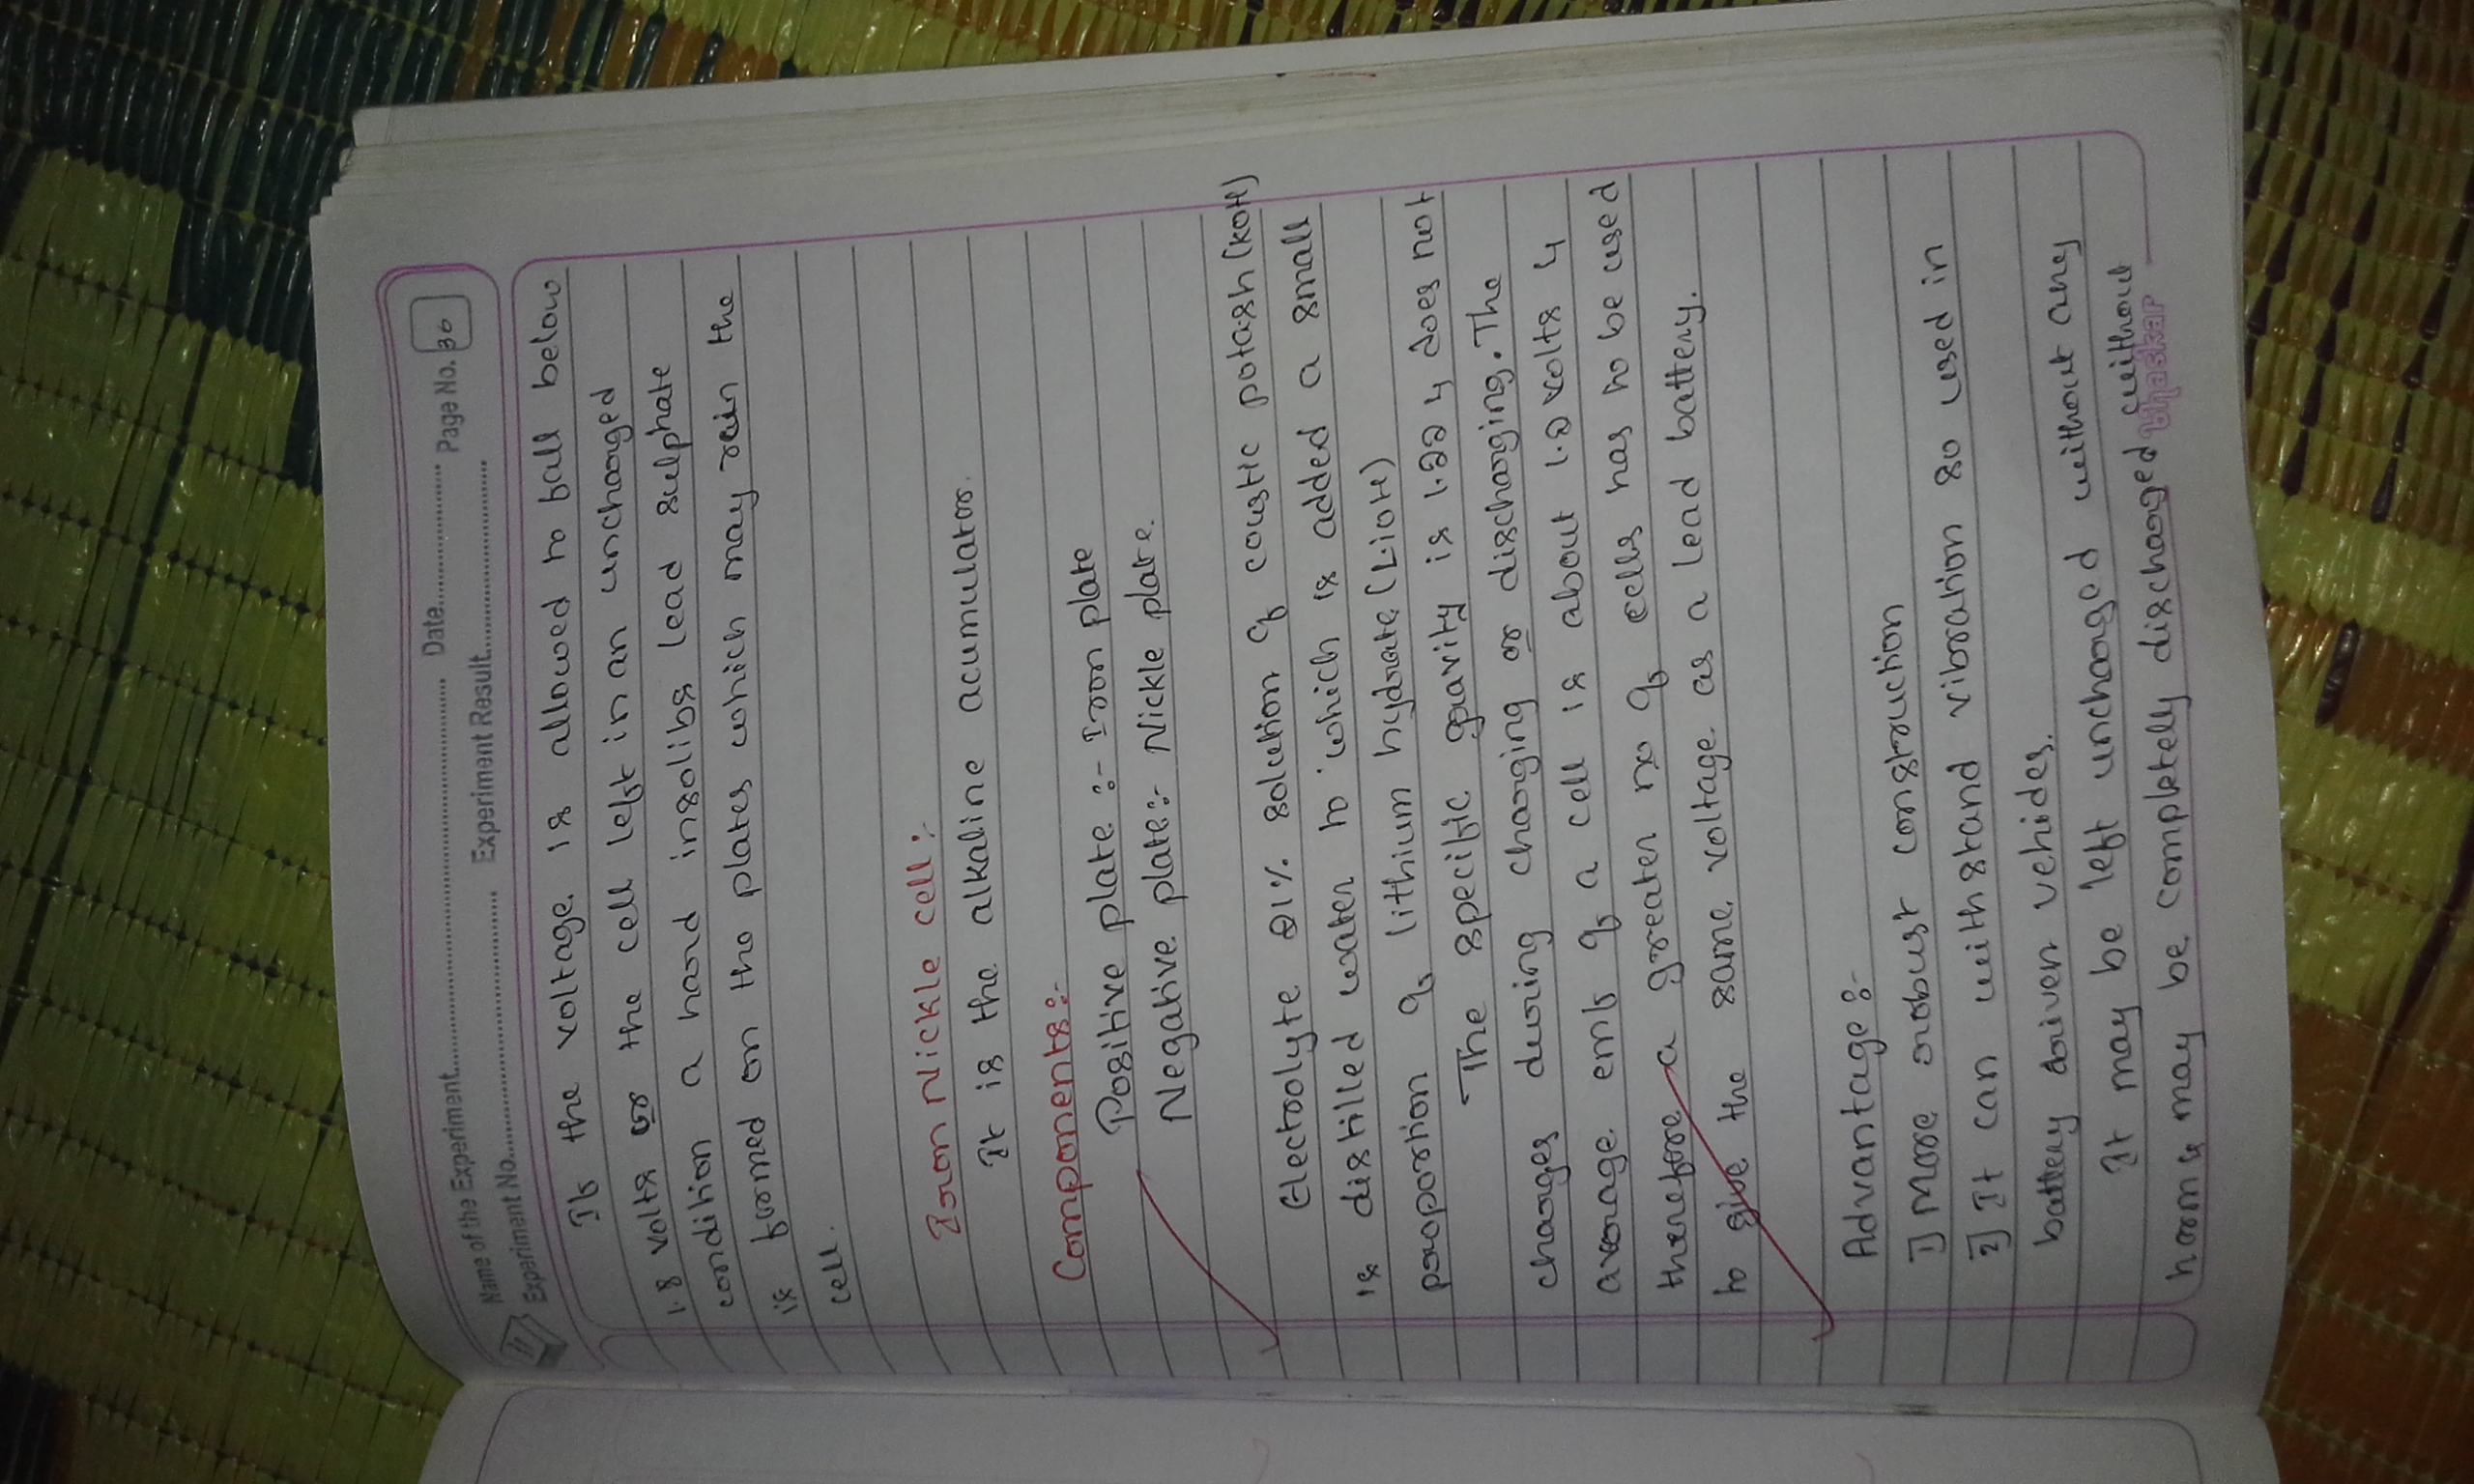 Name of the Experiment.................... Date............ Page No. 36
Experiment No.................... Experiment Result....................
If the voltage is allowed to fall below
1.8 volts or the cell left in an uncharged
condition a hard insolibs lead sulphate
is formed on the plates which may rein the
cell.
Iron Nickle cell :-
It is the alkaline acumulator.
Components :-
Positive plate :- Iron plate
Negative plate :- Nickle plate.
Electrolyte 21% solution of coustic potash (KOH)
is distilled water to which is added a small
proportion of lithium hydrate (LiOH)
The specific gravity is 1.22 & does not
charges during charging or discharging. The
avrage emf of a cell is about 1.2 volts &
therefore a greater no of cells has to be used
to give the same voltage as a lead battery.
Advantage :-
1] More robust construction
2] It can withstand vibration so used in
battery driven vehides.
It may be left uncharged without any
harm & may be completely discharged without